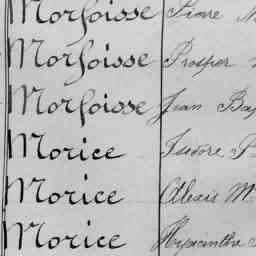 Morfoisse Pierre M
Morfoisse Prosper
Morfoisse Jean Bap
Morice Isidore P
Morice Alexis M
Morice Hyacinthe